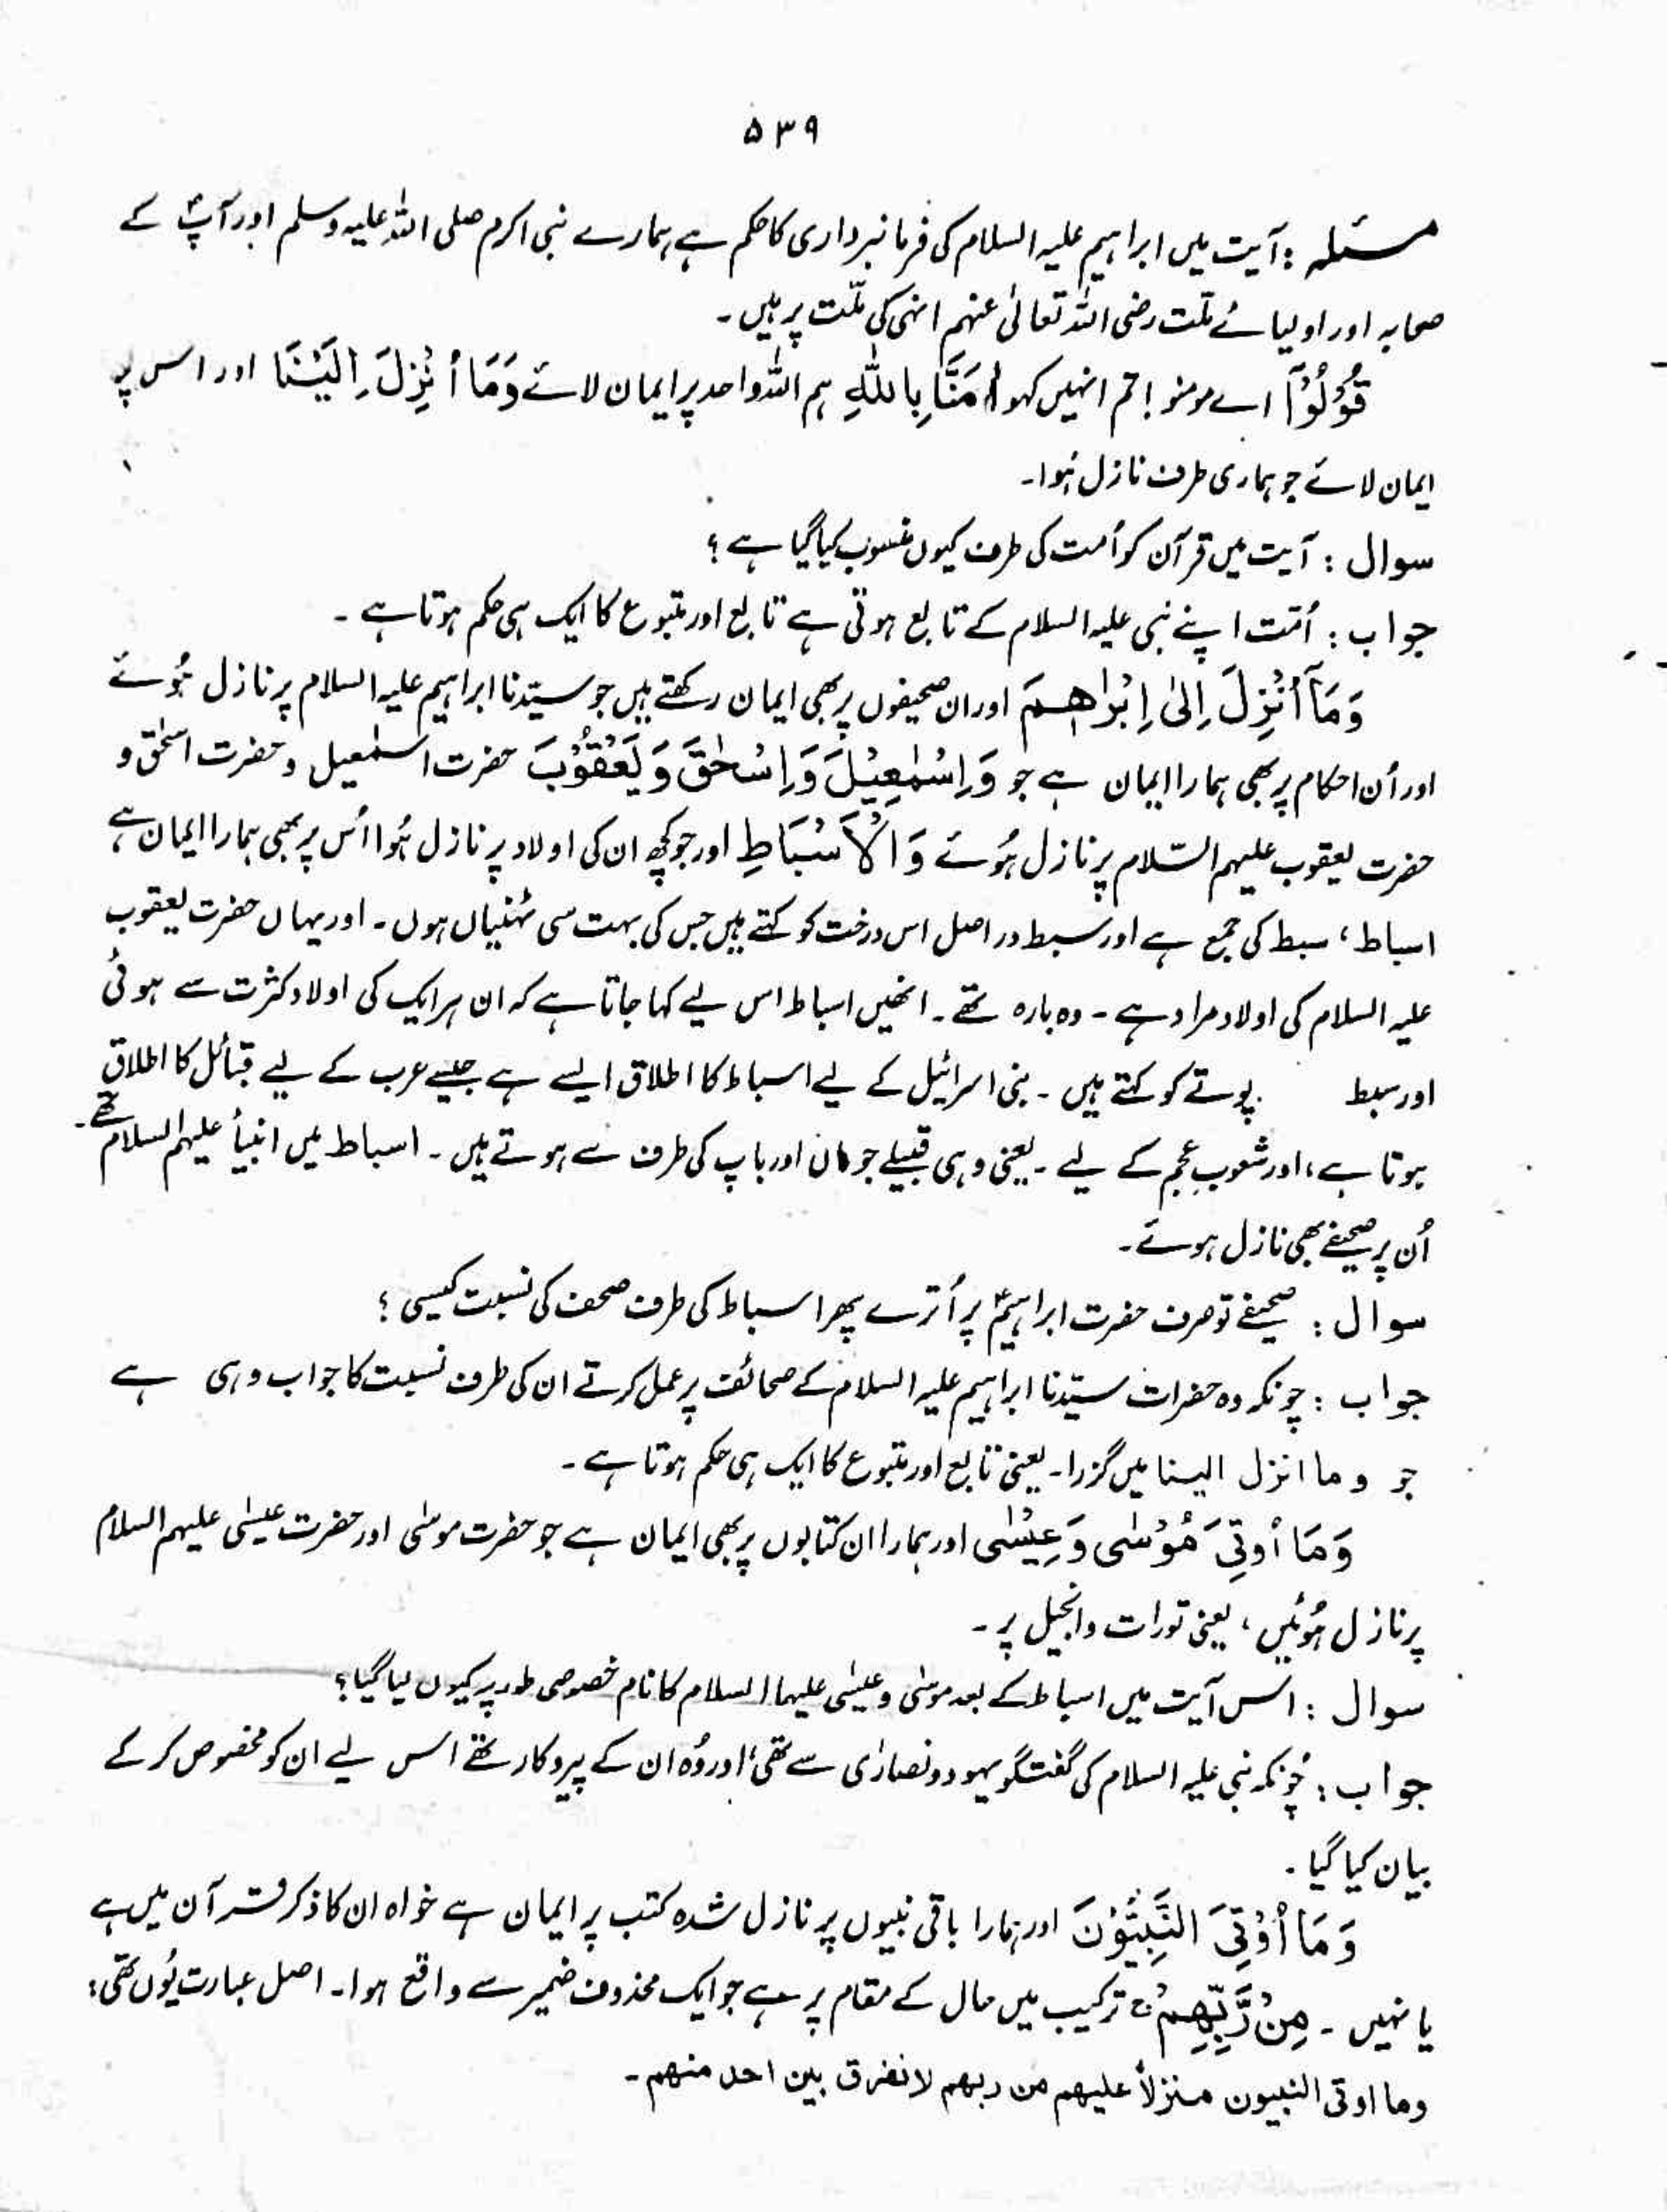 ۵۳۹
مسئلہ : آیت میں ابراہیم علیہ السلام کی فرمانبرداری کا حکم ہے ہمارے نبی اکرم صلی اللہ علیہ وسلم اور آپؐ کے
صحابہ اور اولیائے ملّت رضی اللہ تعالیٰ عنہم انہی کی ملّت پر ہیں ۔
قُوْلُوْٓا اے مومنو ! تم انہیں کہو اٰمَنَّا بِاللّٰہِ ہم اللہ واحد پر ایمان لائے وَمَا اُنْزِلَ اِلَیْنَا اور اس پر
ایمان لائے جو ہماری طرف نازل ہُوا۔
سوال : آیت میں قرآن کو اُمت کی طرف کیوں منسوب کیا گیا ہے ؟
جواب : اُمّت اپنے نبی علیہ السلام کے تابع ہوتی ہے تابع اور متبوع کا ایک ہی حکم ہوتا ہے ۔
وَمَآ اُنْزِلَ اِلٰی اِبْرٰاھٖمَ اور ان صحیفوں پر بھی ایمان رکھتے ہیں جو سیّدنا ابراہیم علیہ السلام پر نازل ہُوئے
اور اُن احکام پر بھی ہمارا ایمان ہے جو وَاِسْمٰعِیْلَ وَاِسْحٰقَ وَیَعْقُوْبَ حضرت اسمٰعیل و حضرت اسحٰق و
حضرت یعقوب علیہم السّلام پر نازل ہُوئے وَالْاَسْبَاطِ اور جو کچھ ان کی اولاد پر نازل ہُوا اُس پر بھی ہمارا ایمان ہے
اسباط ، سبط کی جمع ہے اور سبط در اصل اس درخت کو کہتے ہیں جس کی بہت سی ٹہنیاں ہوں ۔ اور یہاں حضرت یعقوب
علیہ السلام کی اولاد مراد ہے ۔ وہ بارہ تھے ۔ انھیں اسباط اس لیے کہا جاتا ہے کہ ان ہر ایک کی اولاد کثرت سے ہوئی
اور سبط پوتے کو کہتے ہیں ۔ بنی اسرائیل کے لیے اسباط کا اطلاق ایسے ہے جیسے عرب کے لیے قبائل کا اطلاق
ہوتا ہے ، اور شعوبِ عجم کے لیے ۔ یعنی وہی قبیلے جو ماں اور باپ کی طرف سے ہوتے ہیں ۔ اسباط میں انبیأ علیہم السلام تھے ۔
اُن پر صحیفے بھی نازل ہوئے ۔
سوال : صحیفے تو صرف حضرت ابراہیمؑ پر اُترے پھر اسباط کی طرف صحف کی نسبت کیسی ؟
جواب : چونکہ وہ حضرات سیّدنا ابراہیم علیہ السلام کے صحائف پر عمل کرتے ان کی طرف نسبت کا جواب وہی ہے
جو و ما انزل الینا میں گزرا ۔ یعنی تابع اور متبوع کا ایک ہی حکم ہوتا ہے ۔
وَمَا اُوتِیَ مُوْسٰی وَعِیْسٰی اور ہمارا ان کتابوں پر بھی ایمان ہے جو حضرت موسٰی اور حضرت عیسٰی علیہم السلام
پر نازل ہُوئیں ، یعنی تورات و انجیل پر ۔
سوال : اس آیت میں اسباط کے بعد موسٰی و عیسٰی علیہما السلام کا نام خصوصی طور پر کیوں لیا گیا ؟
جواب : چُونکہ نبی علیہ السلام کی گفتگو یہود و نصارٰی سے تھی اور وُہ ان کے پیروکار تھے اس لیے ان کو مخصوص کر کے
بیان کیا گیا ۔
وَمَا اُوْتِیَ النَّبِیُّوْنَ اور ہمارا باقی نبیوں پر نازل شدہ کتب پر ایمان ہے خواہ ان کا ذکر قرآن میں ہے
یا نہیں ۔ مِنْ رَّبِّھِمْ ج ترکیب میں حال کے مقام پر ہے جو ایک محذوف ضمیر سے واقع ہوا ۔ اصل عبارت یُوں تھی :
وما اوتی النبیون منزلاً علیھم من ربھم لا نفرق بین احد منھم ۔